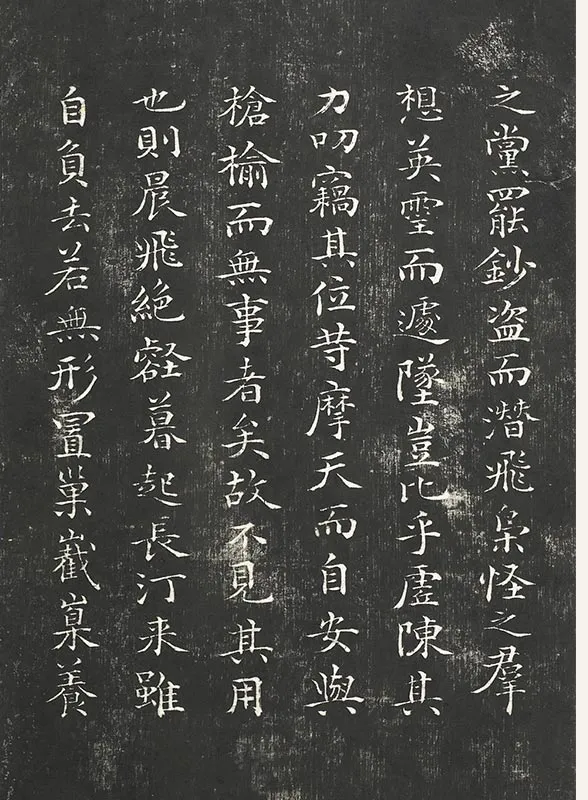 之黨罷鈔盜而潛飛梟怪之羣
想英霊而遽墜豈比乎虛陳其
力叨竊其位苛摩天而自安與
槍榆而無事者矣故不見其用
也則晨飛絶壑暮起長汀来雖
自負去若無形置巢截嶪養